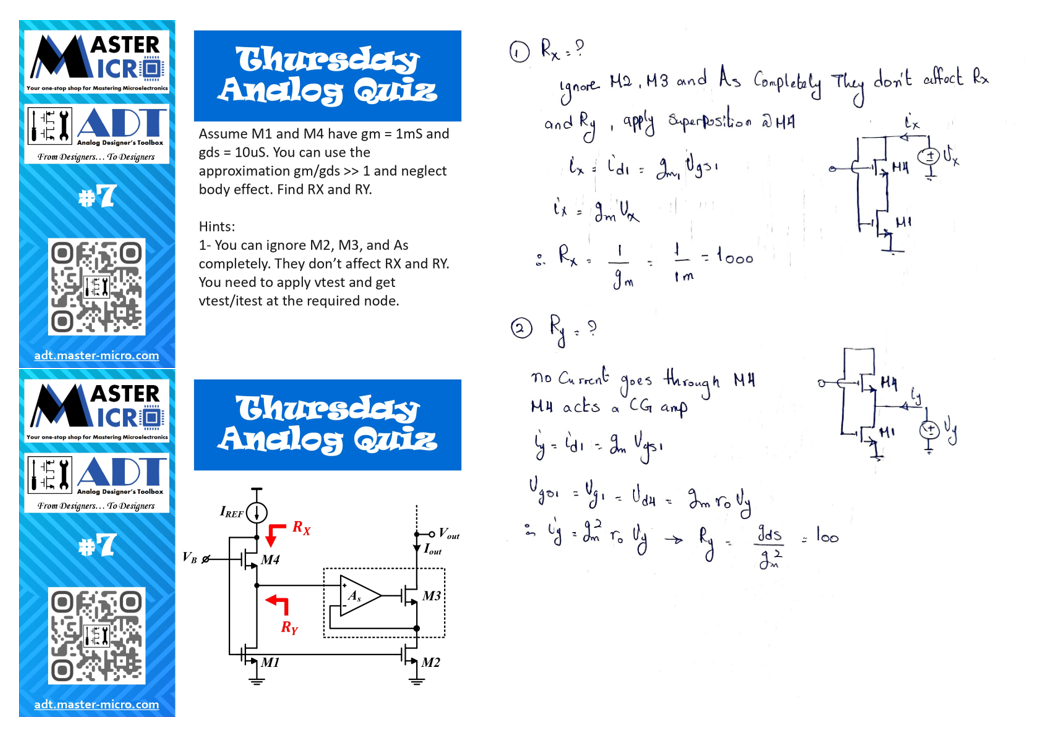 MASTER
MICRO
Your one-stop shop for Mastering Microelectronics
ADT
Analog Designer's Toolbox
From Designers… To Designers
#7
adt.master-micro.com
Thursday
Analog Quiz
Assume M1 and M4 have gm = 1mS and
gds = 10uS. You can use the
approximation gm/gds >> 1 and neglect
body effect. Find RX and RY.
Hints:
1- You can ignore M2, M3, and As
completely. They don't affect RX and RY.
You need to apply vtest and get
vtest/itest at the required node.
MASTER
MICRO
Your one-stop shop for Mastering Microelectronics
ADT
Analog Designer's Toolbox
From Designers… To Designers
#7
adt.master-micro.com
Thursday
Analog Quiz
I_REF
R_X
V_B
M4
V_out
I_out
+
A_s
-
M3
R_Y
M1
M2
① Rx = ?
ignore M2, M3 and As Completely They don't affect Rx
and Ry, apply Superposition @ M4
ix = id1 = gm1 Vgs1
ix = gm Vx
∴ Rx = 1/gm = 1/1m = 1000
ix
M4
Vx
M1
② Ry = ?
no Current goes through M4
M4 acts a CG amp
iy = id1 = gm Vgs1
Vgs1 = Vg1 = Vd4 = gm ro Vy
∴ iy = gm² ro Vy → Ry = gds/gm² = 100
M4
iy
M1
Vy